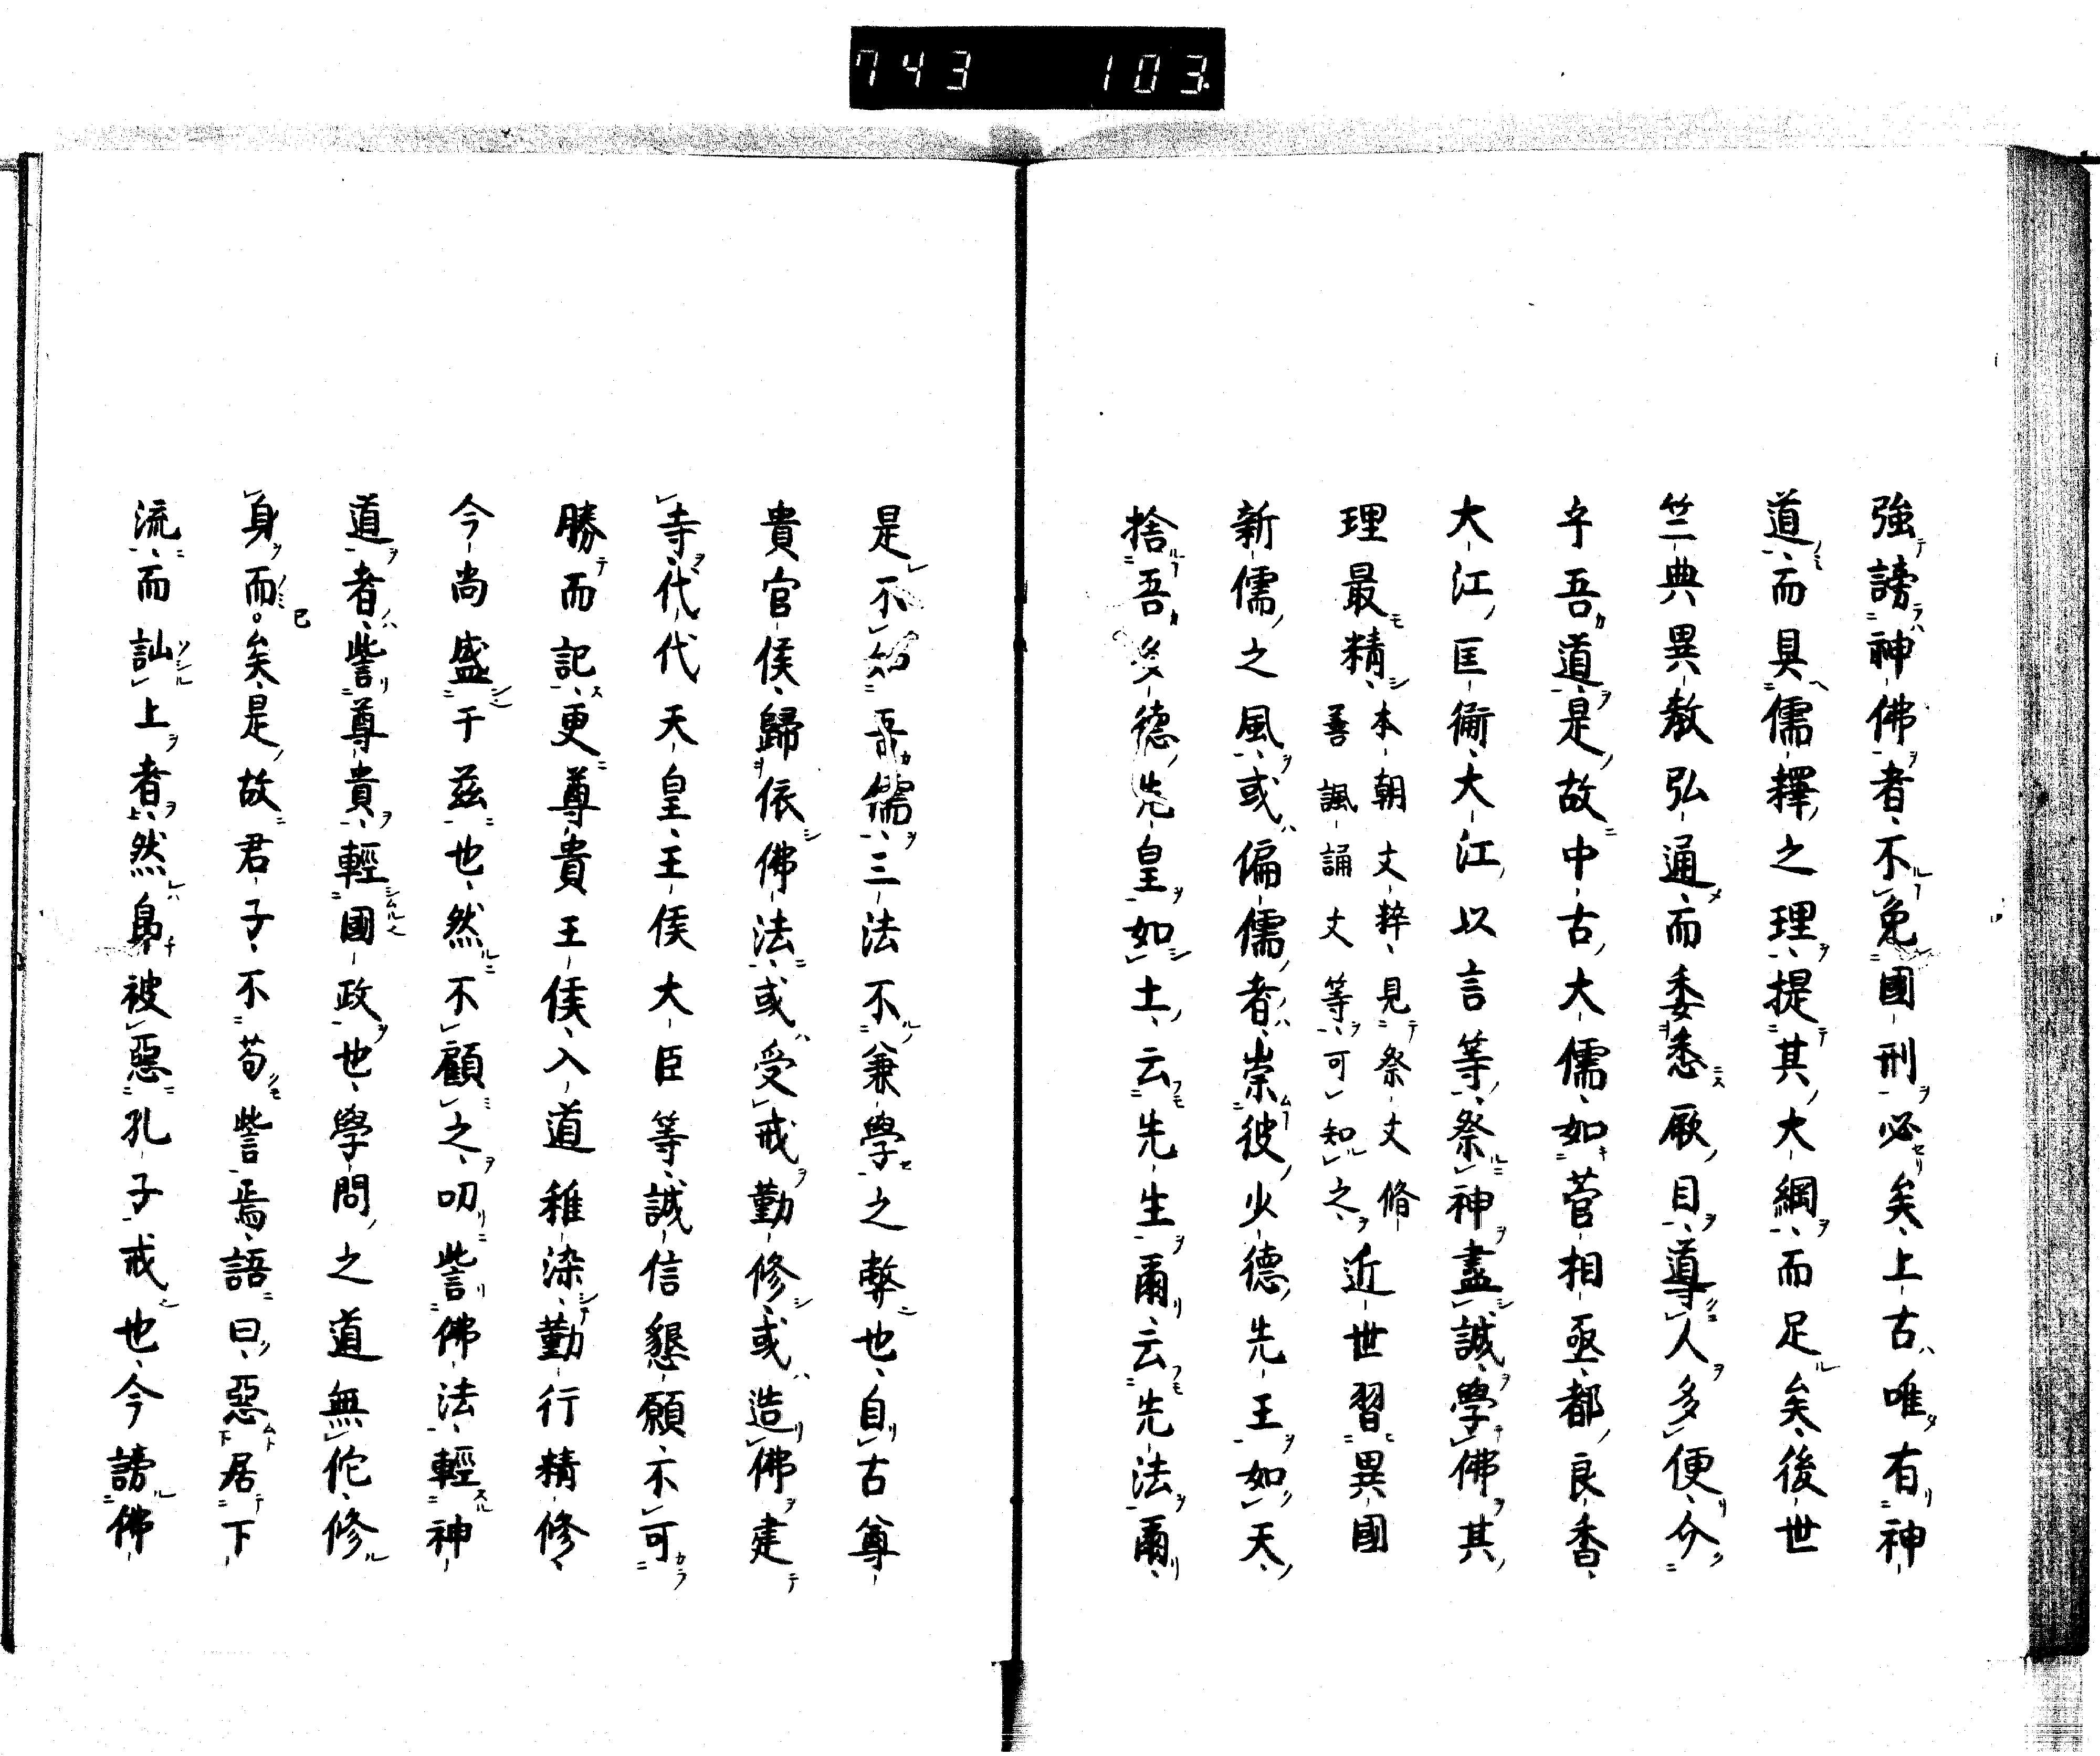 743 103
強謗神佛者不免國刑必矣上古唯有神
道而具儒釋之理提其大綱而足矣後世
竺典異教弘通而委悉厥目導人多便今
乎吾道是故中古大儒如菅相亟都良香
大江匡衡大江以言等祭神盡誠學佛其
理最精
本朝文粹見祭文脩
善諷誦文等可知之
近世習異國
新儒之風或偏儒者崇彼少德先王如天
捨吾多德先皇如土云先生爾云先法爾
是不知吾儒三法不兼學之弊也自古尊
貴官侯歸依佛法或受戒勤修或造佛建
寺代代天皇王侯大臣等誠信懇願不可
勝而記更尊貴王侯入道稚染勤行精修
今尚盛于茲也然不顧之叨訾佛法輕神
道者訾尊貴輕國政也學問之道無佗修
身而已矣是故君子不苟訾焉語曰惡居下
流而訕上者然身被惡孔子戒也今謗佛